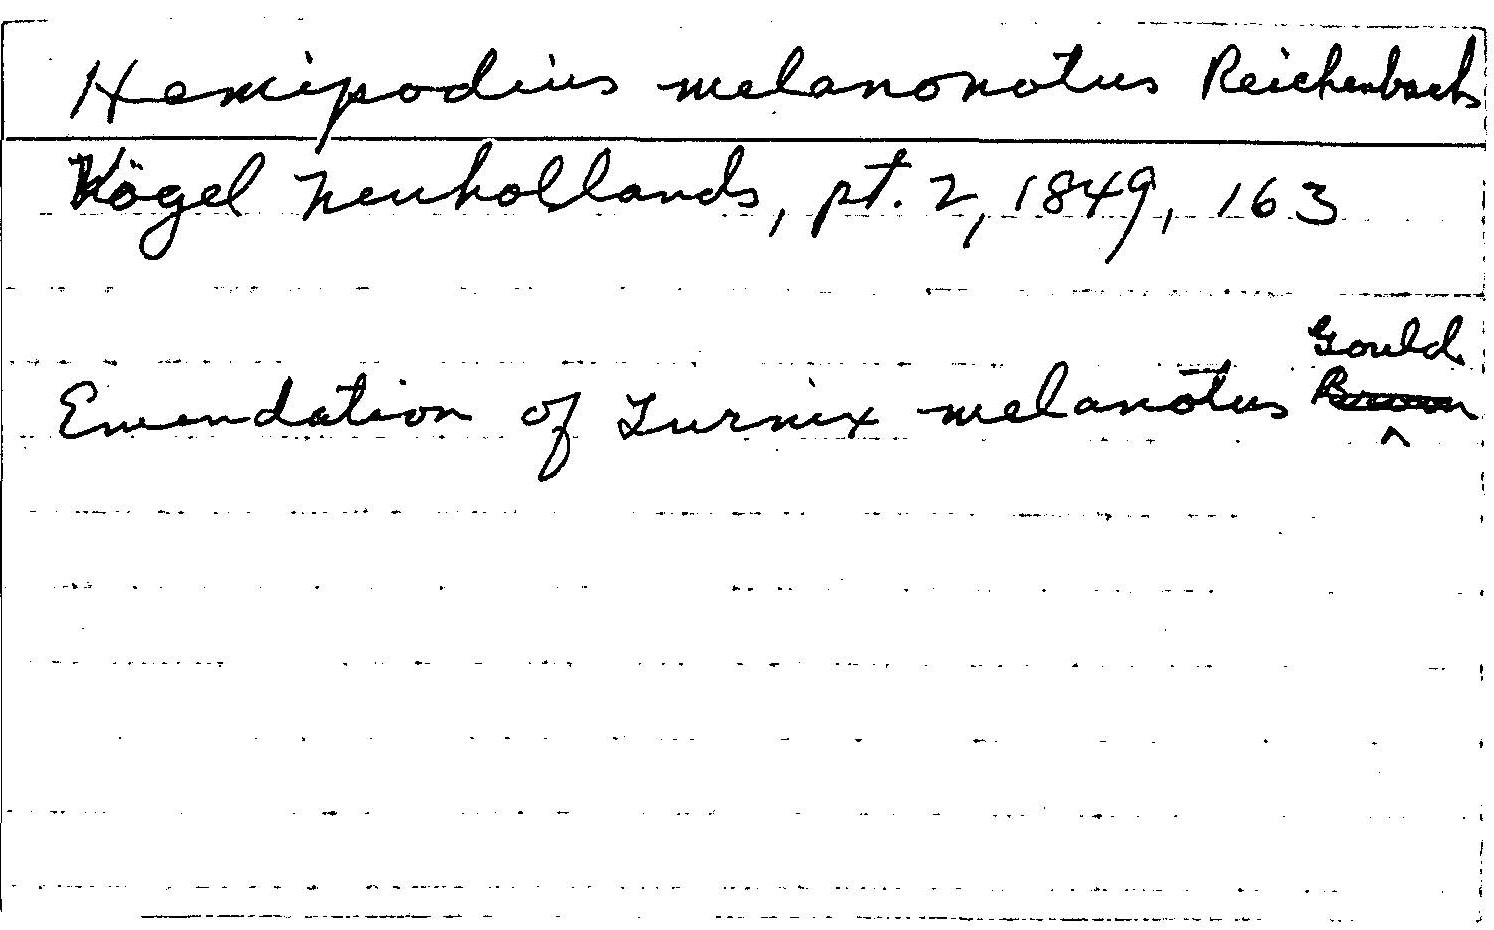 Hemipodius melanonotus Reichenbach
Vögel Neuhollands, pt. 2, 1849, 163
Gould
Emendation of Turnix melanotus Brown
^